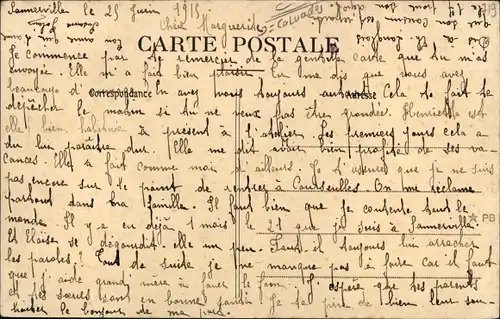 Sannerville le 25 Juin 1915.
Chère Marguerite
Calvados
CARTE POSTALE
Correspondance
Adresse
Je commence par te remercier de la gentille carte que tu m'as
envoyée. Elle m'a fait bien plaisir. Tu me dis que vous avez
beaucoup d' Tu en avez vous toujours autant. Cela te fait te
dépêcher le matin si tu ne veux pas être grondée. Henriette est
elle bien habituée à présent à l'atelier. Les premiers jours cela a
du lui paraître dur. Elle me dit avoir bien profité de ses va-
cances. Elle a fait comme moi d'ailleurs. Je t'assure que je ne suis
pas encore sur le point de rentrer à Courseulles. On me réclame
partout dans la famille. Il faut bien que je contente tout le
monde. Il y a eu déjà 1 mois le 21 que je suis à Sannerville.
Et Eloïse se dégourdit elle un peu. Faut il toujours lui arracher
les paroles? Tout de suite je ne manque pas à faire car il faut
que j'aide grand mère à faner le foin. J'espère que tes parents
et tes sœurs sont en bonne santé. Je te prie de bien leur sou-
haiter le bonjour de ma part.
PB